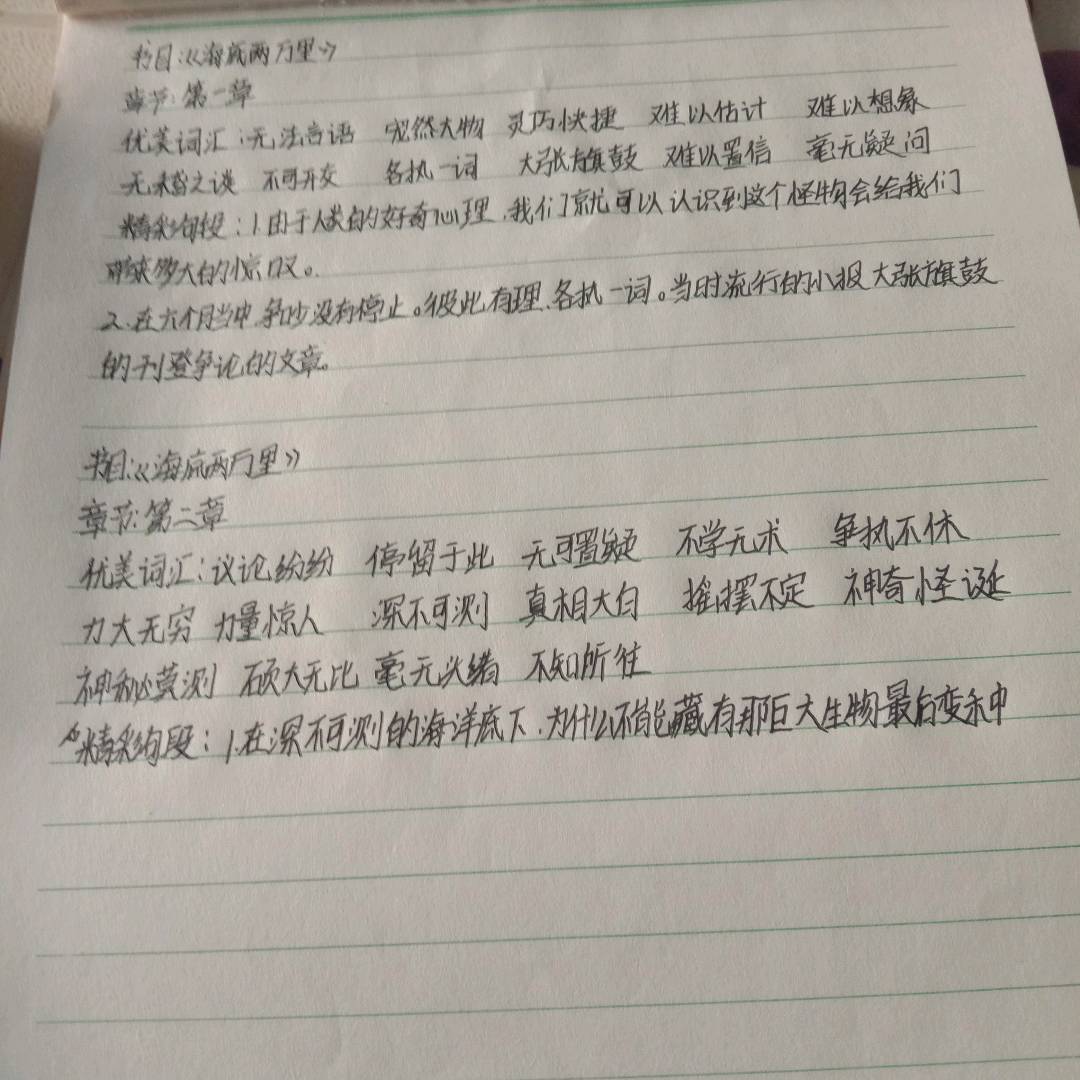 书目:《海底两万里》
章节:第一章
优美词汇:无法言语 宠然大物 灵巧快捷 难以估计 难以想象
无稽之谈 不可开交 各执一词 大张旗鼓 难以置信 毫无疑问
精彩句段:1.由于人类的好奇心理,我们就可以认识到这个怪物会给我们
带来多大的惊叹。
2.在六个月当中,争吵没有停止。彼此有理,各执一词。当时流行的小报大张旗鼓
的刊登争论的文章。
书目:《海底两万里》
章节:第二章
优美词汇:议论纷纷 停留于此 无可置疑 不学无术 争执不休
力大无穷 力量惊人 深不可测 真相大白 摇摆不定 神奇怪诞
神秘莫测 硕大无比 毫无头绪 不知所往
精彩句段:1.在深不可测的海洋底下,为什么不能藏有那巨大生物最后变种